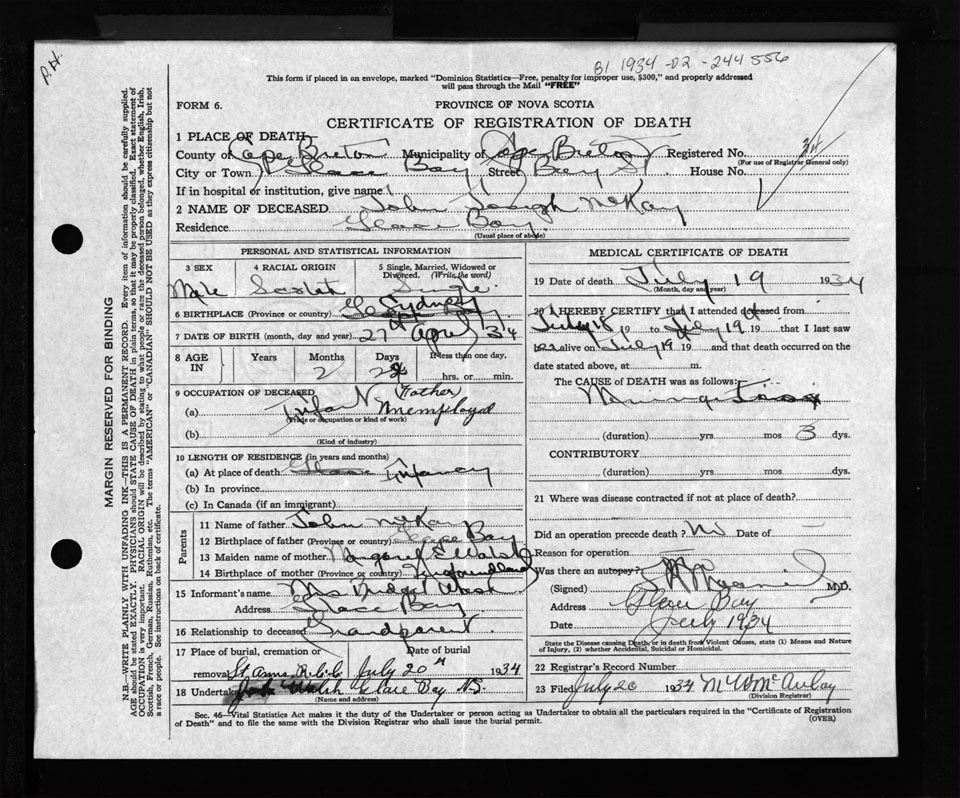 P.H.
B1 1934 -02 -244 556
This form if placed in an envelope, marked "Dominion Statistics—Free, penalty for improper use, $300," and properly addressed
will pass through the Mail "FREE"
FORM 6.
PROVINCE OF NOVA SCOTIA
CERTIFICATE OF REGISTRATION OF DEATH
1 PLACE OF DEATH
County of Cape Breton Municipality of Cape Breton Registered No.
(For use of Registrar General only)
City or Town Glace Bay Street House No.
If in hospital or institution, give name
2 NAME OF DECEASED John Joseph McKay
Residence Glace Bay
(Usual place of abode)
PERSONAL AND STATISTICAL INFORMATION
3 SEX 4 RACIAL ORIGIN 5 Single, Married, Widowed or
Divorced. (Write the word)
Male Single
6 BIRTHPLACE (Province or country) Sydney
7 DATE OF BIRTH (month, day and year) 27 April 34
8 AGE IN Years Months Days If less than one day,
2 hrs. or min.
9 OCCUPATION OF DECEASED (Father)
(a) Infant Unemployed
(Trade or occupation or kind of work)
(b)
(Kind of industry)
10 LENGTH OF RESIDENCE (in years and months)
(a) At place of death Infancy
(b) In province
(c) In Canada (if an immigrant)
Parents
11 Name of father John McKay
12 Birthplace of father (Province or country) Glace Bay
13 Maiden name of mother Margaret E Walsh
14 Birthplace of mother (Province or country) Newfoundland
15 Informant's name Mrs Bridget Walsh
Address Glace Bay
16 Relationship to deceased Grandparent
17 Place of burial, cremation or Date of burial
removal St. Anns July 20 1934
18 Undertaker Walsh Glace Bay NS.
(Name and address)
MEDICAL CERTIFICATE OF DEATH
19 Date of death July 19 1934
(Month, day and year)
20 I HEREBY CERTIFY that I attended deceased from
July 18 19 to July 19 19 that I last saw
alive on July 19 19 and that death occurred on the
date stated above, at m.
The CAUSE of DEATH was as follows:
(duration) yrs. mos 3 dys.
CONTRIBUTORY
(duration) yrs. mos. dys.
21 Where was disease contracted if not at place of death?
Did an operation precede death? No Date of
Reason for operation
Was there an autopsy?
(Signed) M.D.
Address Glace Bay
Date July 1934
State the Disease causing Death, or in death from Violent Causes, state (1) Means and Nature
of Injury, (2) whether Accidental, Suicidal or Homicidal.
22 Registrar's Record Number
23 Filed July 20 1934
(Division Registrar)
Sec. 46—Vital Statistics Act makes it the duty of the Undertaker or person acting as Undertaker to obtain all the particulars required in the "Certificate of Registration
of Death" and to file the same with the Division Registrar who shall issue the burial permit. (OVER)
MARGIN RESERVED FOR BINDING
N.B.—WRITE PLAINLY WITH UNFADING INK—THIS IS A PERMANENT RECORD. Every item of information should be carefully supplied.
AGE should be stated EXACTLY. PHYSICIANS should STATE CAUSE OF DEATH in plain terms, so that it may be properly classified. Exact statement of
OCCUPATION is very important. RACIAL ORIGIN will be described by stating to what people or race the deceased person belonged, whether English, Irish,
Scottish, French, German, Russian, Ruthenian, etc. The terms "AMERICAN" or "CANADIAN" SHOULD NOT BE USED as they express citizenship but not
a race or people. See instructions on back of certificate.